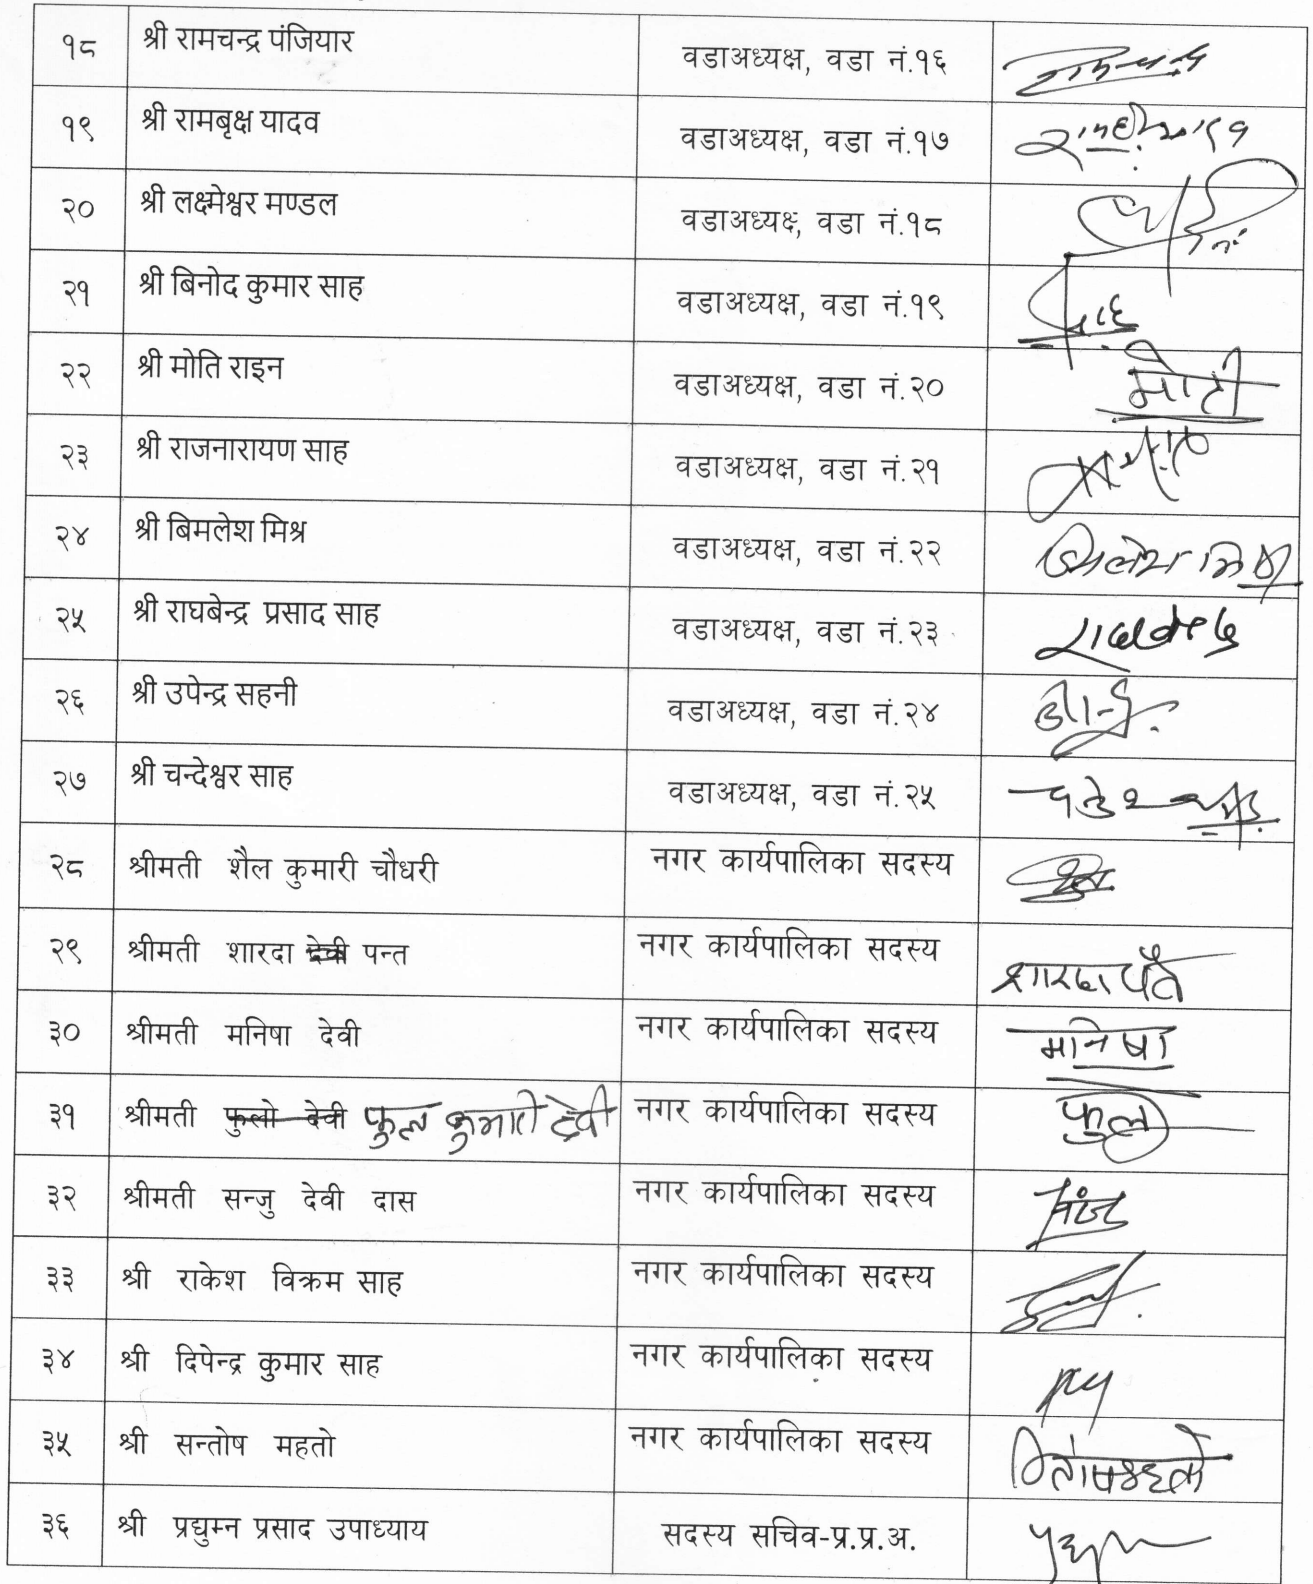 १८ श्री रामचन्द्र पंजियार वडाअध्यक्ष, वडा नं.१६
१९ श्री रामबृक्ष यादव वडाअध्यक्ष, वडा नं.१७
२० श्री लक्ष्मेश्वर मण्डल वडाअध्यक्ष, वडा नं.१८
२१ श्री बिनोद कुमार साह वडाअध्यक्ष, वडा नं.१९
२२ श्री मोति राइन वडाअध्यक्ष, वडा नं.२० मोती
२३ श्री राजनारायण साह वडाअध्यक्ष, वडा नं.२१
२४ श्री बिमलेश मिश्र वडाअध्यक्ष, वडा नं.२२
२५ श्री राघबेन्द्र प्रसाद साह वडाअध्यक्ष, वडा नं.२३
२६ श्री उपेन्द्र सहनी वडाअध्यक्ष, वडा नं.२४
२७ श्री चन्देश्वर साह वडाअध्यक्ष, वडा नं.२५
२८ श्रीमती शैल कुमारी चौधरी नगर कार्यपालिका सदस्य
२९ श्रीमती शारदा देवी पन्त नगर कार्यपालिका सदस्य शारदा पंत
३० श्रीमती मनिषा देवी नगर कार्यपालिका सदस्य मनिषा
३१ श्रीमती फुलो देवी फुल कुमारी देवी नगर कार्यपालिका सदस्य फुल
३२ श्रीमती सन्जु देवी दास नगर कार्यपालिका सदस्य
३३ श्री राकेश विक्रम साह नगर कार्यपालिका सदस्य
३४ श्री दिपेन्द्र कुमार साह नगर कार्यपालिका सदस्य
३५ श्री सन्तोष महतो नगर कार्यपालिका सदस्य
३६ श्री प्रद्युम्न प्रसाद उपाध्याय सदस्य सचिव-प्र.प्र.अ.